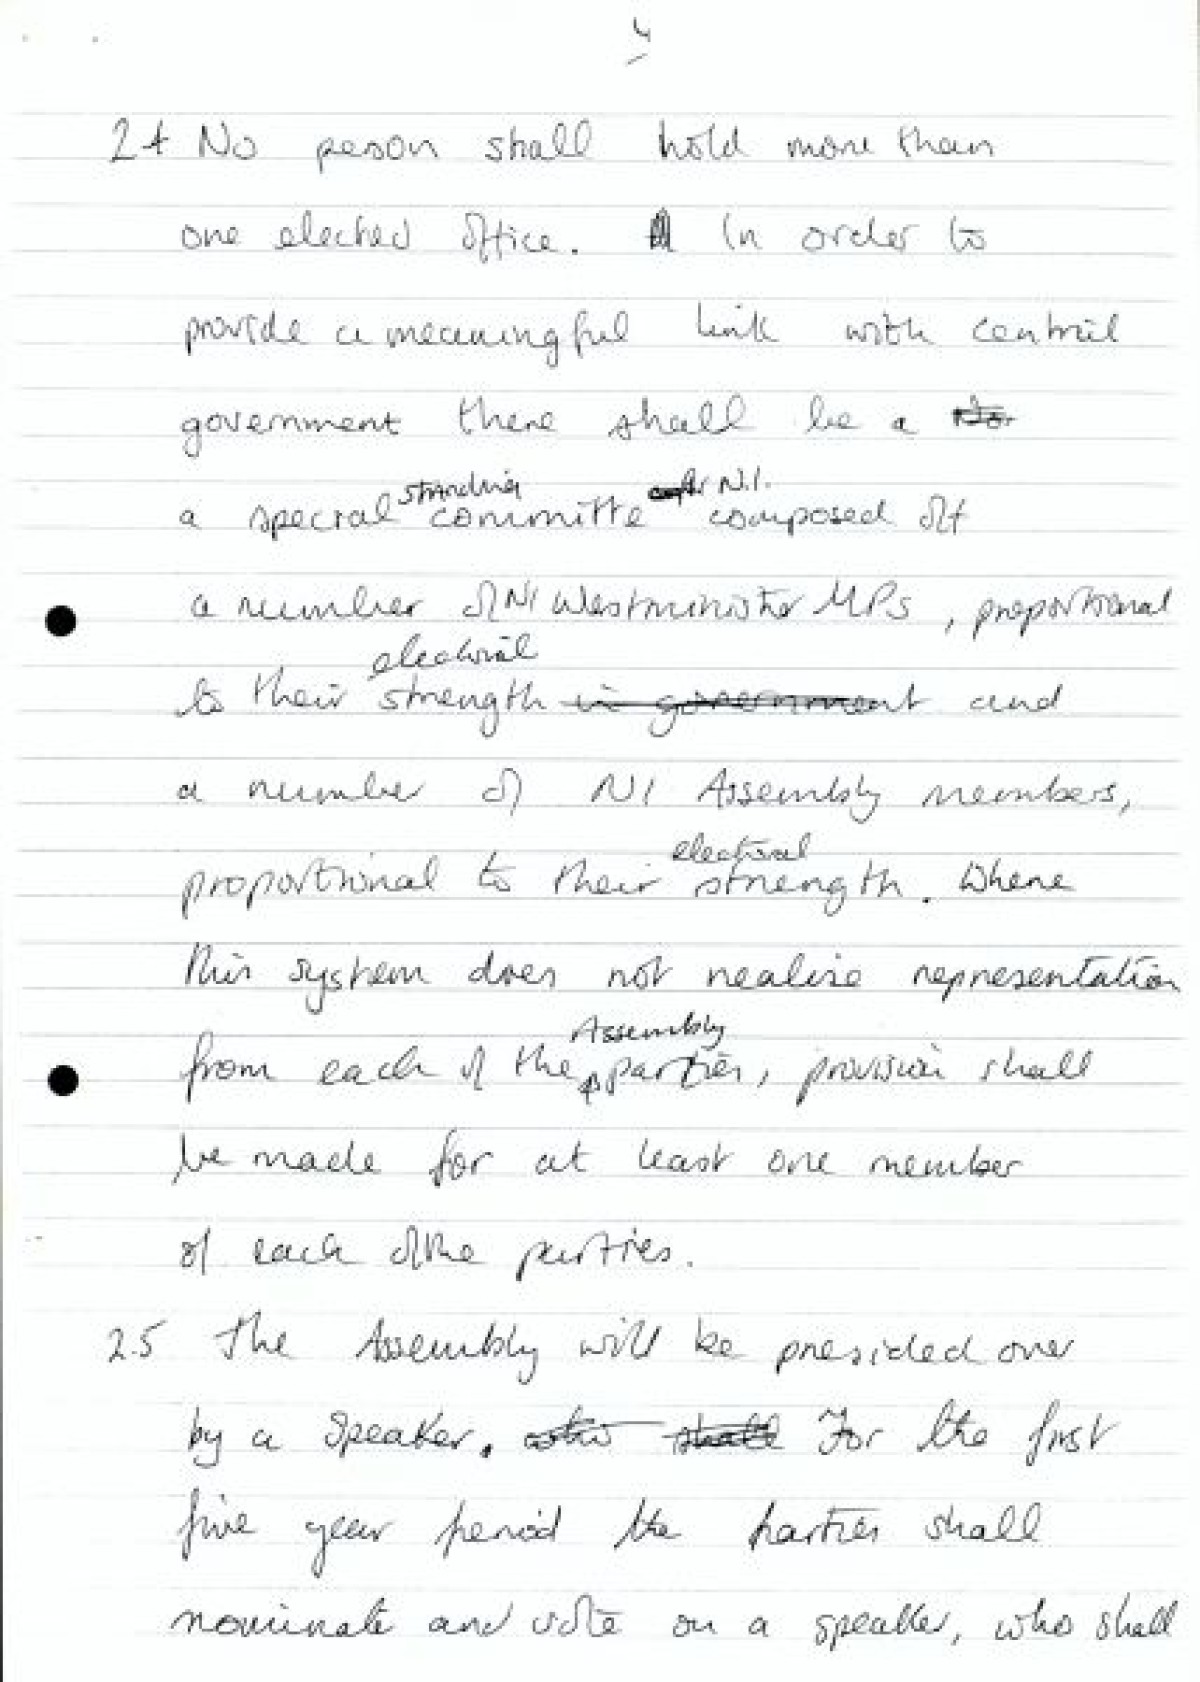 4
24 No person shall hold more than
one elected office. In order to
provide a meaningful link with central
government there shall be a
standing for N.I.
a special committe composed off
a number of NI Westminister MPs, proportional
electoral
to their strength in government and
a number of NI Assembly members,
electoral
proportional to their strength. Where
this system does not realise representation
Assembly
from each of the parties, provision shall
be made for at least one member
of each of the parties.
25 The Assembly will be presided over
by a Speaker. who shall For the first
five year period the parties shall
nominate and vote on a speaker, who shall